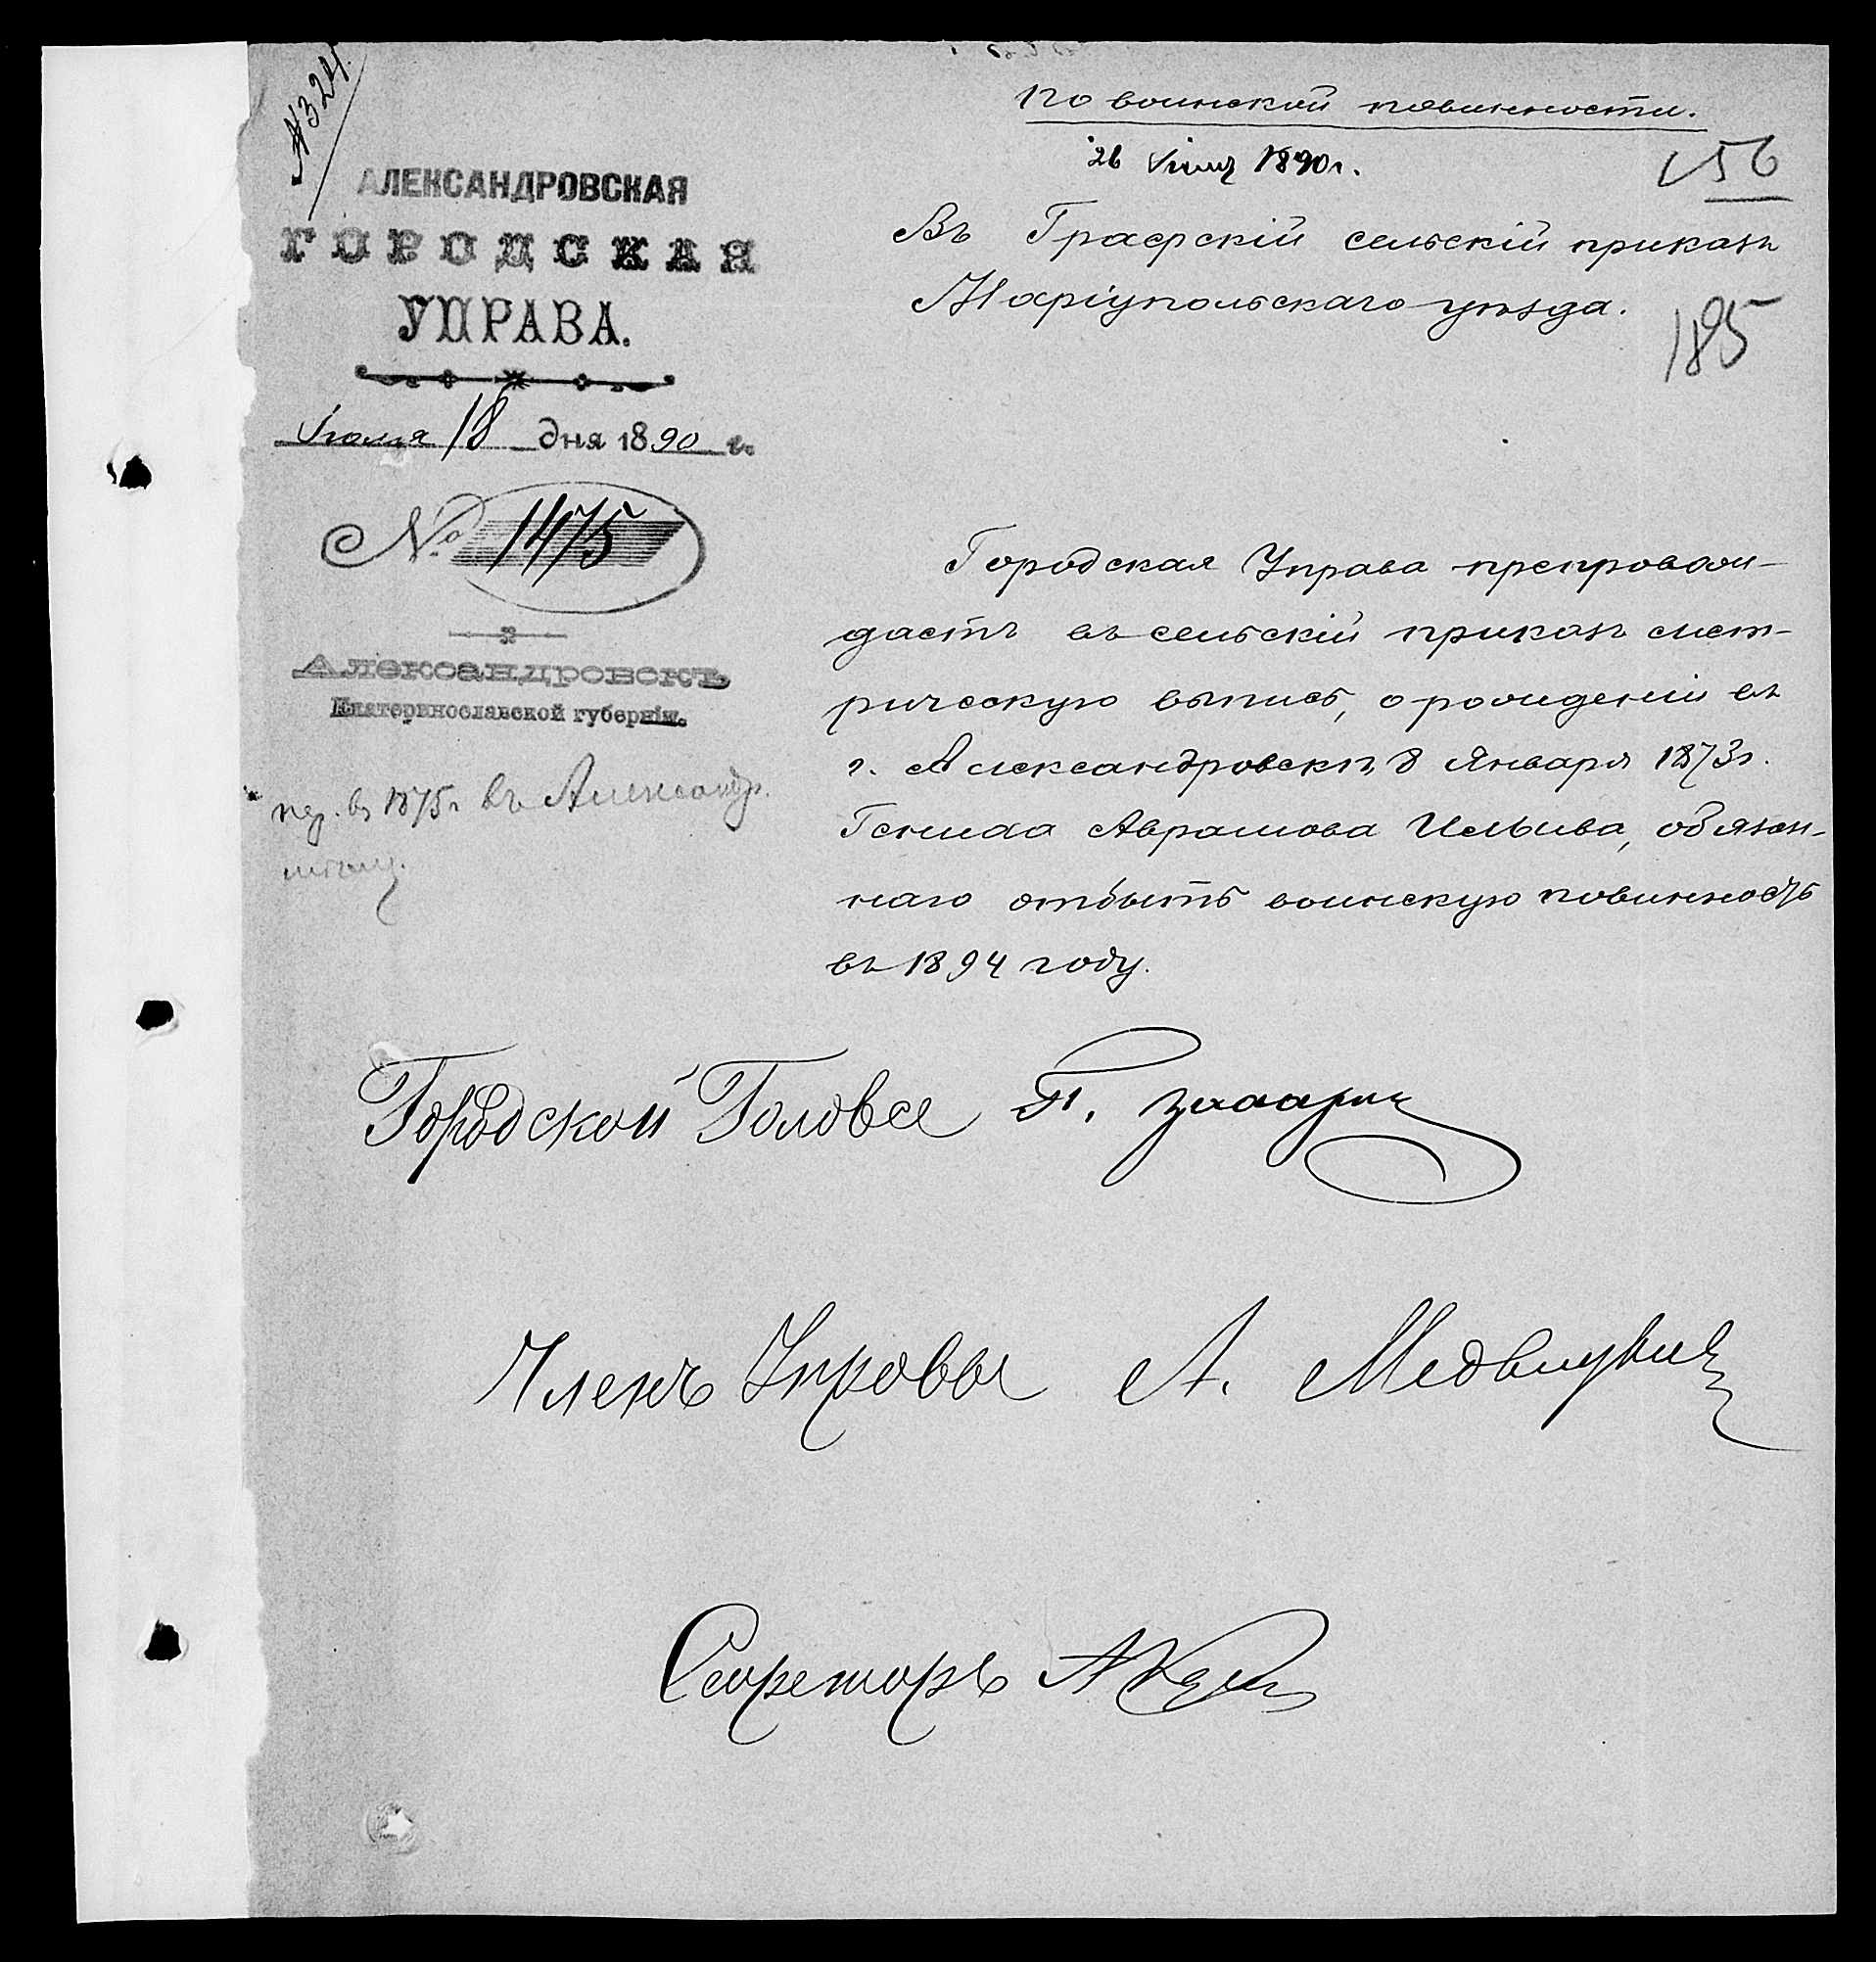 № 324.
АЛЕКСАНДРОВСКАЯ
ГОРОДСКАЯ
УПРАВА.
Іюля 18 дня 1890 г.
№ 1475
Александровскъ
Екатеринославской губерніи.
въ 1875 г. въ Александр.
По воинской повинности.
26 1890 г.
156
Въ Графскій сельскій приказъ
Маріупольскаго уѣзда.
185
Городская Управа препровож-
даетъ въ сельскій приказъ мет-
рическую выпись, о рожденіи въ
г. Александровскѣ, 8 Января 1873 г.
Аврамова обязан-
наго отбыть воинскую повинность
въ 1894 году.
Городской Голова
Членъ Управы А.
Секретарь